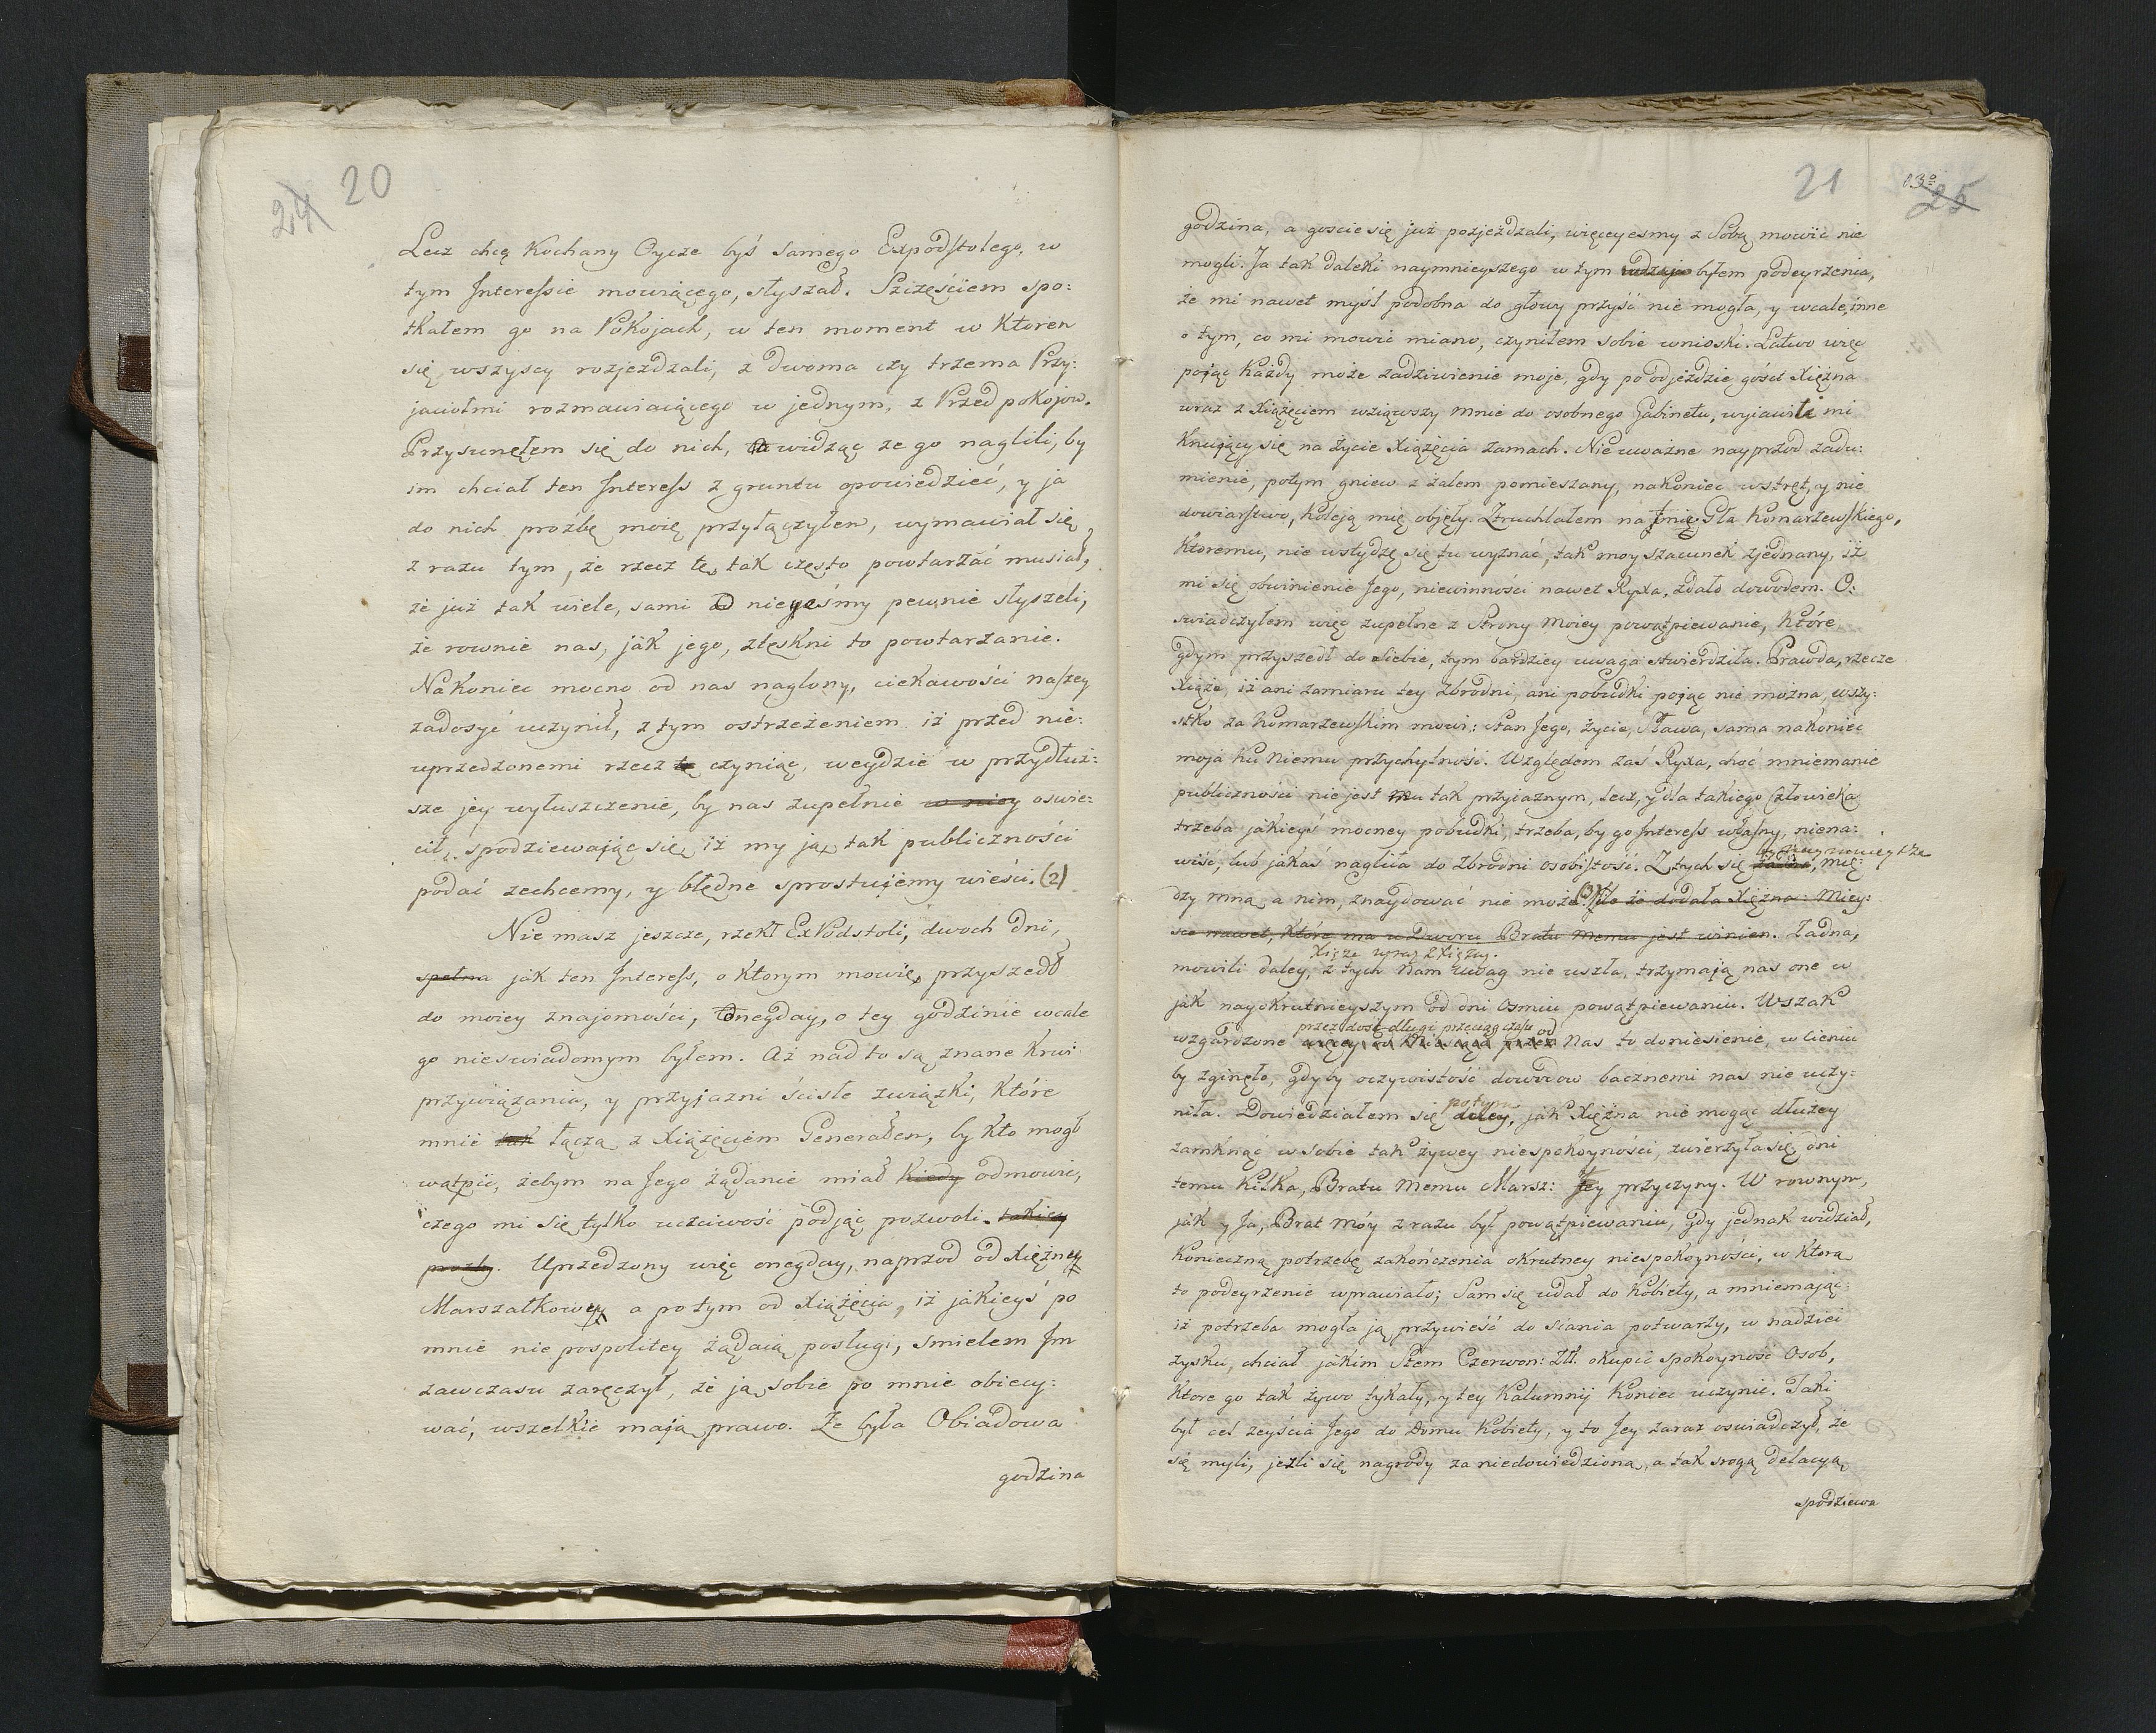 24 20
Lecz chcę Kochany Oycze byś samego Expodstolego, w
tym Interessie mowiącego, słyszał. Szczęściem spo:
tkałem go na Pokojach, w ten moment w Ktoren
się wszyscy rozjeżdzali, z dwoma czy trzema Przy:
jaciołmi rozmawiaiącego w jednym, z Przedpokojow.
Przysunęłem się do nich, a widząc ze go naglili, by
im chciał ten Interess z gruntu opowiedzieć, y ja
do nich prozbę moię przyłączyłem, wymawiał się
z razu tym, że rzecz tę tak często powtarzać musiał,
że już tak wiele, sami od niegośmy pewnie słyszeli,
że rownie nas, jak jego, ztęskni to powtarzanie.
Nakoniec mocno od nas naglony, ciekawości naszey
zadosyć uczynił, z tym ostrzeżeniem iż przed nie:
uprzedzonemi rzecz tę czyniąc, weydzie w przydłuż:
sze jey wyłuszczenie, by nas zupełnie w niey oswie:
cił, spodziewając się iż my ją tak publiczności
podać zechcemy, y błędne sprostujemy wieści. (2)
Nie masz jeszcze, rzekł ExPodstoli, dwoch dni,
spełna jak ten Interess, o ktorym mowię, przyszedł
do moiey znajomości, Onegday, o tey godzinie wcale
go nieswiadomym byłem. Aż nadto są znane Krwi
przywiązania, y przyjazni ścisłe związki, Które
mnie tak łączą z Xiążęciem Generałem, by kto mogł
wątpić, żebym na Jego żądanie miał kiedy odmowić,
czego mi się tylko uczciwość podjąć pozwoli. takiey
prozby. Uprzedzony więc onegday, naprzod od Xiężney
Marszałkowey a potym od Xiążęcia, iż jakieyś po
mnie niepospolitey żądaią posługi, smiełem Im
zawczasu zaręczył, że ją sobie po mnie obiecy:
wać, wszelkie mają prawo. Że była Obiadowa
godzina
21 25
godzina, a goscie się już pozjeżdzali, więceyesmy z Sobą mowić nie
mogli. Ja tak daleki naymnieyszego w tym rodzaju byłem podeyrzenia,
że mi nawet myśl podobna do głowy przyść nie mogła, y wcale inne
o tym, co mi mowić miano, czyniłem sobie wnioski. Łatwo więc
pojąć Każdy może zadziwienie moje, gdy po odjeździe gości Xiężna
wraz z Xiążęciem wziąwszy mnie do osobnego Gabinetu, wyjawili mi
Knujący się na życie Xiążęcia zamach. Nieuważne nayprzod zadu:
mienie, potym gniew z żalem pomieszany, nakoniec wstręt, y nie
dowiarstwo, Koleją mię objęły. Ztruchlałem na Imię Gła Komarzewskiego,
Ktoremu, nie wstydzę się tu wyznać, tak moy szacunek zjednany, iż
mi się obwinienie Jego, niewinności nawet Ryxa, zdało dowodem. O:
swiadczyłem więc zupełne z Strony moiey powątpiewanie, Które
gdym przyszedł do siebie, tym bardziey uwaga stwierdziła. Prawda, rzecze
Xiąże, iż ani zamiaru tey zbrodni, ani pobudki pojąć nie można, wszy:
stko za Komarzewskim mowi: Stan Jego, życie, Sława, sama nakoniec
moja ku Niemu przychylność. Względem zaś Ryxa, choć mniemanie
publiczności nie jest mu tak przyiaznym, lecz, y dla takiego Człowieka
trzeba jakieyś mocney pobudki, trzeba, by go Interess własny, niena:
wiść, lub jakaś nagliła do zbrodni osobistość. Z tych się żadna, mię:
dzy mną a nim, znaydować nie może. (3) Ile że dodała Xiężna: Miey:
sce nawet, Które ma u Dworu Bratu memu jest winien. Żadna,
Xiąże wraz z Xiężną.
mowili daley, z tych Nam uwag nie uszła, trzymają nas one w
jak nayokrutnieyszym od dni osmiu powątpiewaniu. Wszak
przez dość długi przeciąg czasu od
wzgardzone Nas to doniesienie, w cieniu
by zginęło, gdyby oczywistość dowodow bacznemi nas nie uczy:
potym
niła. Dowiedziałem się daley, jak Xiężna nie mogąc dłużey
zamknąć w sobie tak żywey niespokoyności, zwierzyła się, dni
temu Kilka, Bratu Memu Marsz: Jey przyczyny. W rownym,
jak y Ja, Brat móy z razu był powątpiewaniu, gdy jednak widział,
Konieczną potrzebę zakończenia okrutney niespokoyności, w Która
to podeyrzenie wprawiało; Sam się udał do Kobiety, a mniemając
iż potrzeba mogła ją przywieść do siania potwarzy, w nadziei
zysku, chciał jakim Stem Czerwon: Zł: okupić spokoyność Osob,
Ktore go tak żywo tykały, y tey Kalumnij Koniec uczynić. Taki
był cel zeyścia Jego do Domu Kobiety, y to Jey zaraz oswiadczył, że
się myli, jeżli się nagrody za niedowiedzioną, a tak srogą delacyą
spodziewa